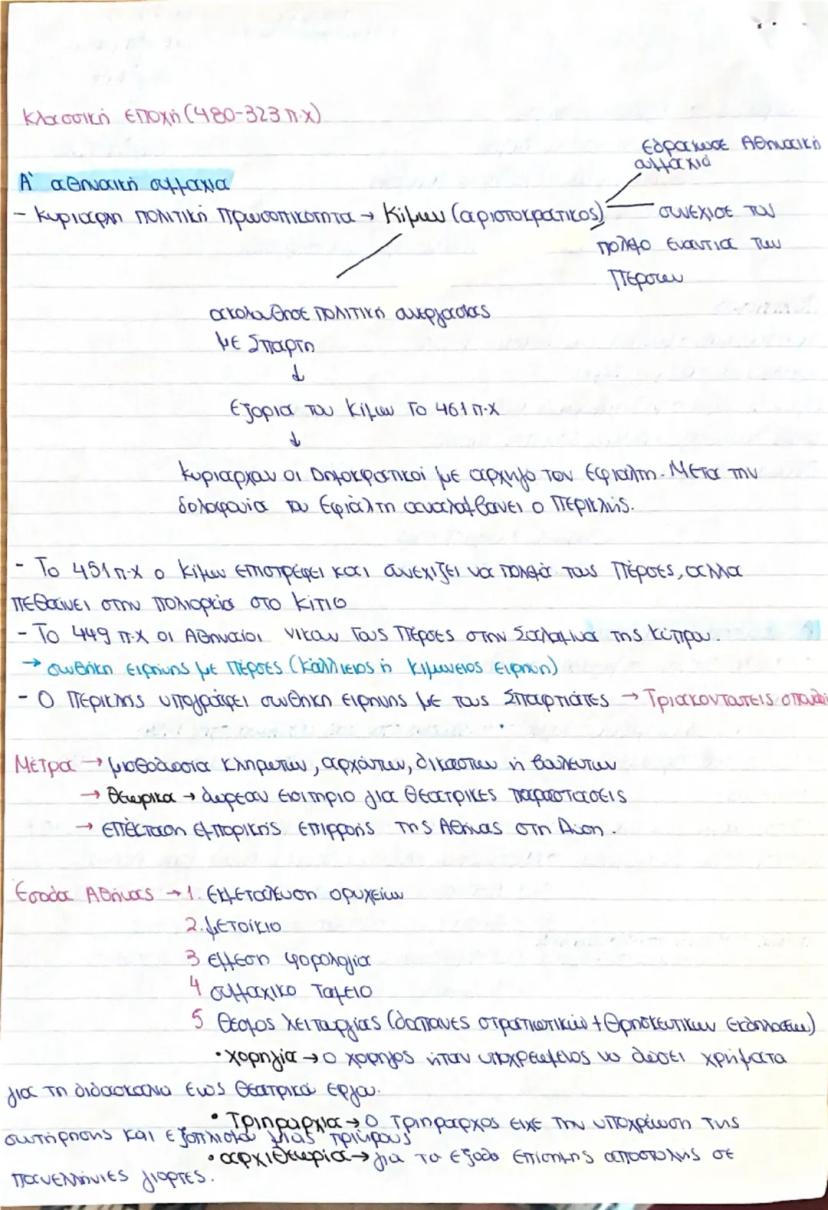 Κλασσική εποχή (480-323 π.χ)
Α' αθηναϊκή συμμαχία
εδραίωσε Αθηναϊκή
συμμαχία
- Κυρίαρχη πολιτική προσωπικότητα → Κίμων (αριστοκρατικος)
συνέχισε τον
πόλεμο εναντία των
Περσών
ακολούθησε πολιτική συνεργασίας
με Σπαρτη
↓
εξορία του Κίμων Το 461 π.χ
↓
κυριαρχουν οι Δημοκρατικοί με αρχηγό τον Εφιάλτη. Μετα την
δολοφονία του Εφιάλτη αναλαμβανει ο Περικλής.
- Το 451 π.χ ο Κίμων επιστρέφει και συνεχιζει να πολεμά τους Πέρσες, αλλα
πεθαινει στην πολιορκία στο Κίτιο
- Το 449 π.χ οι Αθηναίοι νικαν τους Πέρσες στην Σαλαμινα της Κύπρου.
→ συνθήκη ειρήνης με Πέρσες (Καλλίειος ή Κιμώνειος ειρήνη)
- Ο Περικλής υπογράφει συνθήκη ειρήνης με τους Σπαρτιάτες → Τριακοντατεις σπονδαί
Μέτρα → μισθοδοσια κληρωτών, αρχόντων, δικαστων ή βουλευτων
→ θεωρικα → δωρεαν εισιτήριο για θεατρικες παραστασεις
→ επέκταση εμπορικής επιρροής της Αθήνας στη Δύση.
Έσοδα Αθήνας → 1. Εκμετάλευση ορυχείων
2. μετοίκιο
3 εμμεση φορολογία
4 συμμαχικο ταμειο
5 θεσμος λειτουργίας (δαπανες στρατιωτικών + θρησκευτικων εκδηλωσεων)
• χορηγία → ο χορηγος ήταν υποχρεωμενος να δωσει χρήματα
για τη διδασκαλια ενος θεατρικού έργου.
• Τριηραρχια → ο τριηραρχος ειχε την υποχρέωση της
συντήρησης και εξοπλισμου μιας τριήρους
• αρχιθεωρία → για τα εξοδα επίσημης αποστολης σε
πανελλήνιες γιορτες.